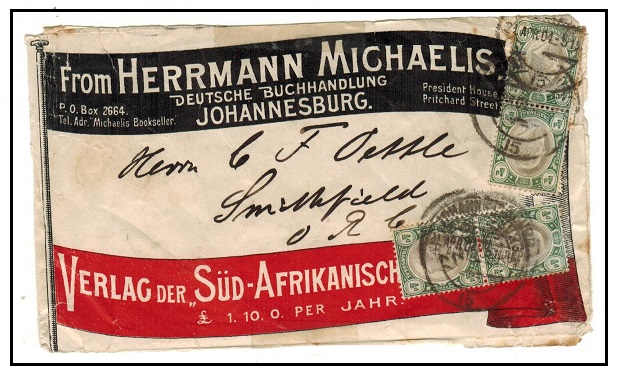 From HERRMANN MICHAELIS,
DEUTSCHE BUCHHANDLUNG
JOHANNESBURG.
P.O. Box 2664.
Tel. Adr. "Michaelis Bookseller."
President House,
Pritchard Street,
Herrn C F Oettle
Smithfield
O R C
VERLAG DER „SÜD-AFRIKANISCH
£ 1. 10. 0. PER JAHR.
APR 04
15
15